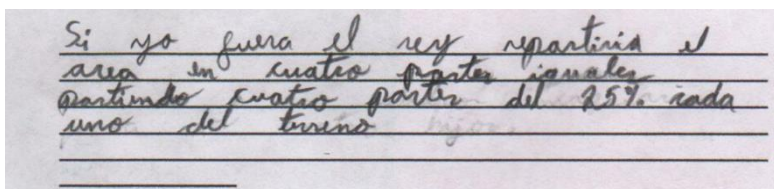 Si yo fuera el rey repartiria el
area en cuatro partes iguales
partiendo cuatro partes del 25% cada
uno del terreno